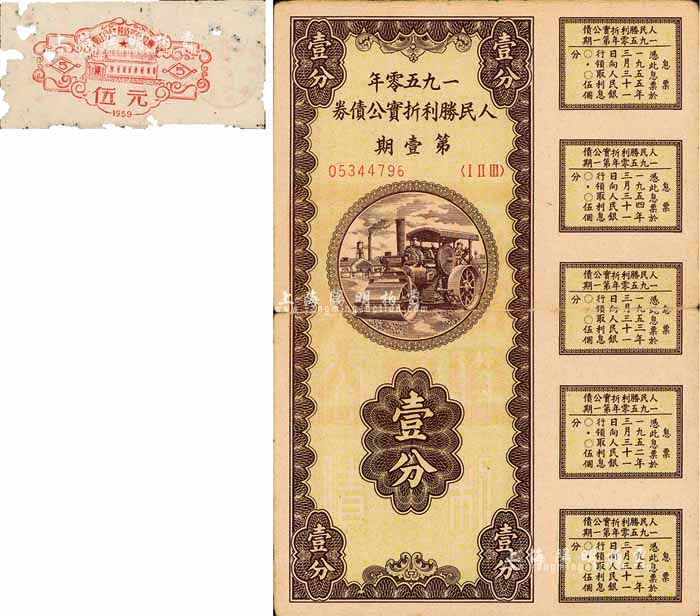 伍元
1959
5
5
壹分
壹分
一九五零年
人民勝利折實公債券
第壹期
05344796
〈I II III〉
壹分
壹分
壹分
人民勝利折實公債
一九五零年第一期
息票
憑此票於
一九五五年
三月三十一
日向人民銀
行領取利息
〇・〇伍個
分
人民勝利折實公債
一九五零年第一期
息票
憑此票於
一九五四年
三月三十一
日向人民銀
行領取利息
〇・〇伍個
分
人民勝利折實公債
一九五零年第一期
息票
憑此票於
一九五三年
三月三十一
日向人民銀
行領取利息
〇・〇伍個
分
人民勝利折實公債
一九五零年第一期
息票
憑此票於
一九五二年
三月三十一
日向人民銀
行領取利息
〇・〇伍個
分
人民勝利折實公債
一九五零年第一期
息票
憑此票於
一九五一年
三月三十一
日向人民銀
行領取利息
〇・〇伍個
分